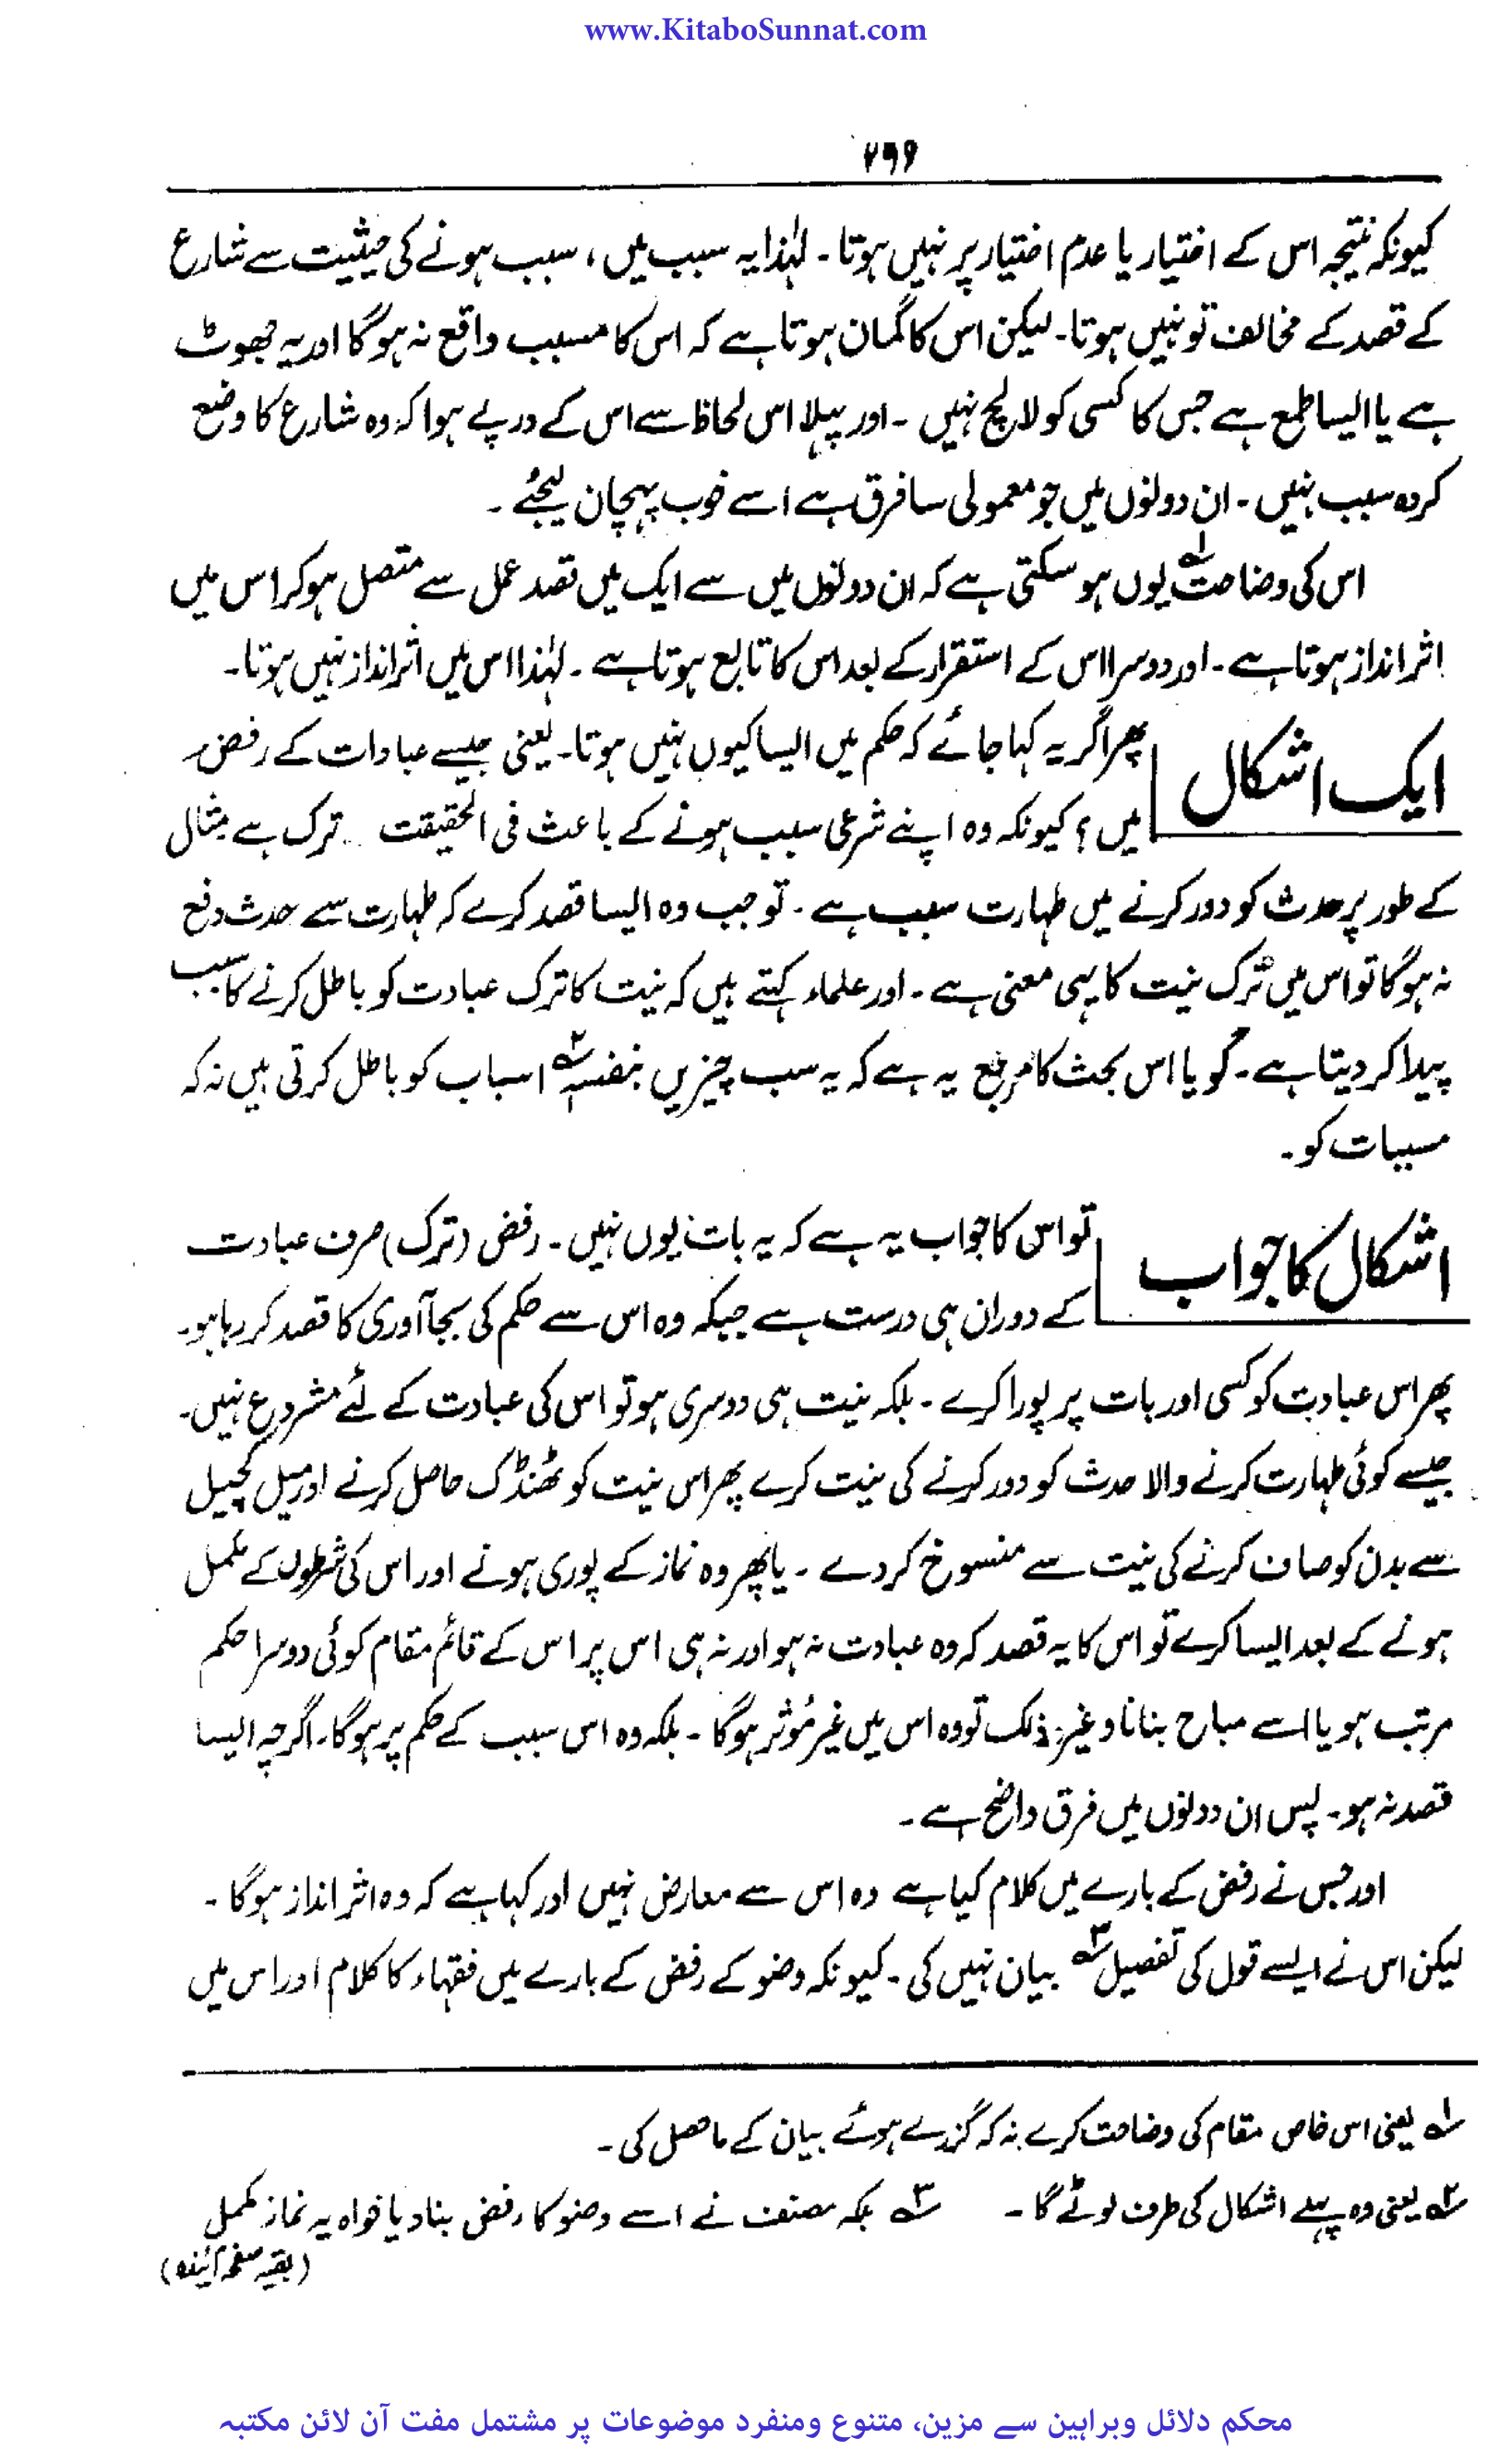 www.KitaboSunnat.com
۲۹۶
کیونکہ نتیجہ اس کے اختیار یا عدم اختیار پر نہیں ہوتا ۔ لہٰذا یہ سبب میں ، سبب ہونے کی حیثیت سے شارع
کے قصد کے مخالف تو نہیں ہوتا ۔ لیکن اس کا گمان ہوتا ہے کہ اس کا مسبب واقع نہ ہوگا اور یہ جھوٹ
ہے یا ایسا طمع ہے جس کا کسی کو لالچ نہیں ۔ اور پہلا اس لحاظ سے اس کے درپے ہوا کہ وہ شارع کا وضع
کردہ سبب نہیں ۔ ان دونوں میں جو معمولی سا فرق ہے اسے خوب پہچان لیجئے ۔
اس کی وضاحت۱ یوں ہو سکتی ہے کہ ان دونوں میں سے ایک میں قصد عمل سے متصل ہو کر اس میں
اثر انداز ہوتا ہے ۔ اور دوسرا اس کے استقرار کے بعد اس کا تابع ہوتا ہے ۔ لہٰذا اس میں اثر انداز نہیں ہوتا ۔
ایک اشکال
پھر اگر یہ کہا جائے کہ حکم میں ایسا کیوں نہیں ہوتا ۔ یعنی جیسے عبادات کے رفض
میں ؟ کیونکہ وہ اپنے شرعی سبب ہونے کے باعث فی الحقیقت ترک ہے مثال
کے طور پر حدث کو دور کرنے میں طہارت سبب ہے ۔ تو جب وہ ایسا قصد کرے کہ طہارت سے حدث دفع
نہ ہوگا تو اس میں ترک نیت کا یہی معنی ہے ۔ اور علماء کہتے ہیں کہ نیت کا ترک عبادت کو باطل کرنے کا سبب
پیدا کر دیتا ہے ۔ گویا اس بحث کا مرجع یہ ہے کہ یہ سب چیزیں بنفسہٖ۲ اسباب کو باطل کرتی ہیں نہ کہ
مسببات کو ۔
اشکال کا جواب
تو اس کا جواب یہ ہے کہ یہ بات یوں نہیں ۔ رفض (ترک) صرف عبادت
کے دوران ہی درست ہے جبکہ وہ اس سے حکم کی بجا آوری کا قصد کر رہا ہو ۔
پھر اس عبادت کو کسی اور بات پر پورا کرے ۔ بلکہ نیت ہی دوسری ہو تو اس کی عبادت کے لئے مشروع نہیں ۔
جیسے کوئی طہارت کرنے والا حدث کو دور کرنے کی نیت کرے پھر اس نیت کو ٹھنڈک حاصل کرنے اور میل کچیل
سے بدن کو صاف کرنے کی نیت سے منسوخ کر دے ۔ یا پھر وہ نماز کے پوری ہونے اور اس کی شرطوں کے مکمل
ہونے کے بعد ایسا کرے تو اس کا یہ قصد کہ وہ عبادت نہ ہو اور نہ ہی اس پر اس کے قائم مقام کوئی دوسرا حکم
مرتب ہو یا اسے مباح بنانا وغیر ذلک تو وہ اس میں غیر مؤثر ہوگا ۔ بلکہ وہ اس سبب کے حکم پر ہوگا ۔ اگرچہ ایسا
قصد نہ ہو ۔ پس ان دونوں میں فرق واضح ہے ۔
اور جس نے رفض کے بارے میں کلام کیا ہے وہ اس سے معارض نہیں اور کہا ہے کہ وہ اثر انداز ہوگا ۔
لیکن اس نے ایسے قول کی تفصیل۳ بیان نہیں کی ۔ کیونکہ وضو کے رفض کے بارے میں فقہاء کا کلام اور اس میں
۱ یعنی اس خاص مقام کی وضاحت کرے نہ کہ گزرے ہوئے بیان کے ماحصل کی ۔
۲ یعنی وہ پہلے اشکال کی طرف لوٹے گا ۔ ۳ بلکہ مصنف نے اسے وضو کا رفض بنا دیا خواہ یہ نماز مکمل
(بقیہ صفحہ آئندہ)
محکم دلائل وبراہین سے مزین، متنوع ومنفرد موضوعات پر مشتمل مفت آن لائن مکتبہ